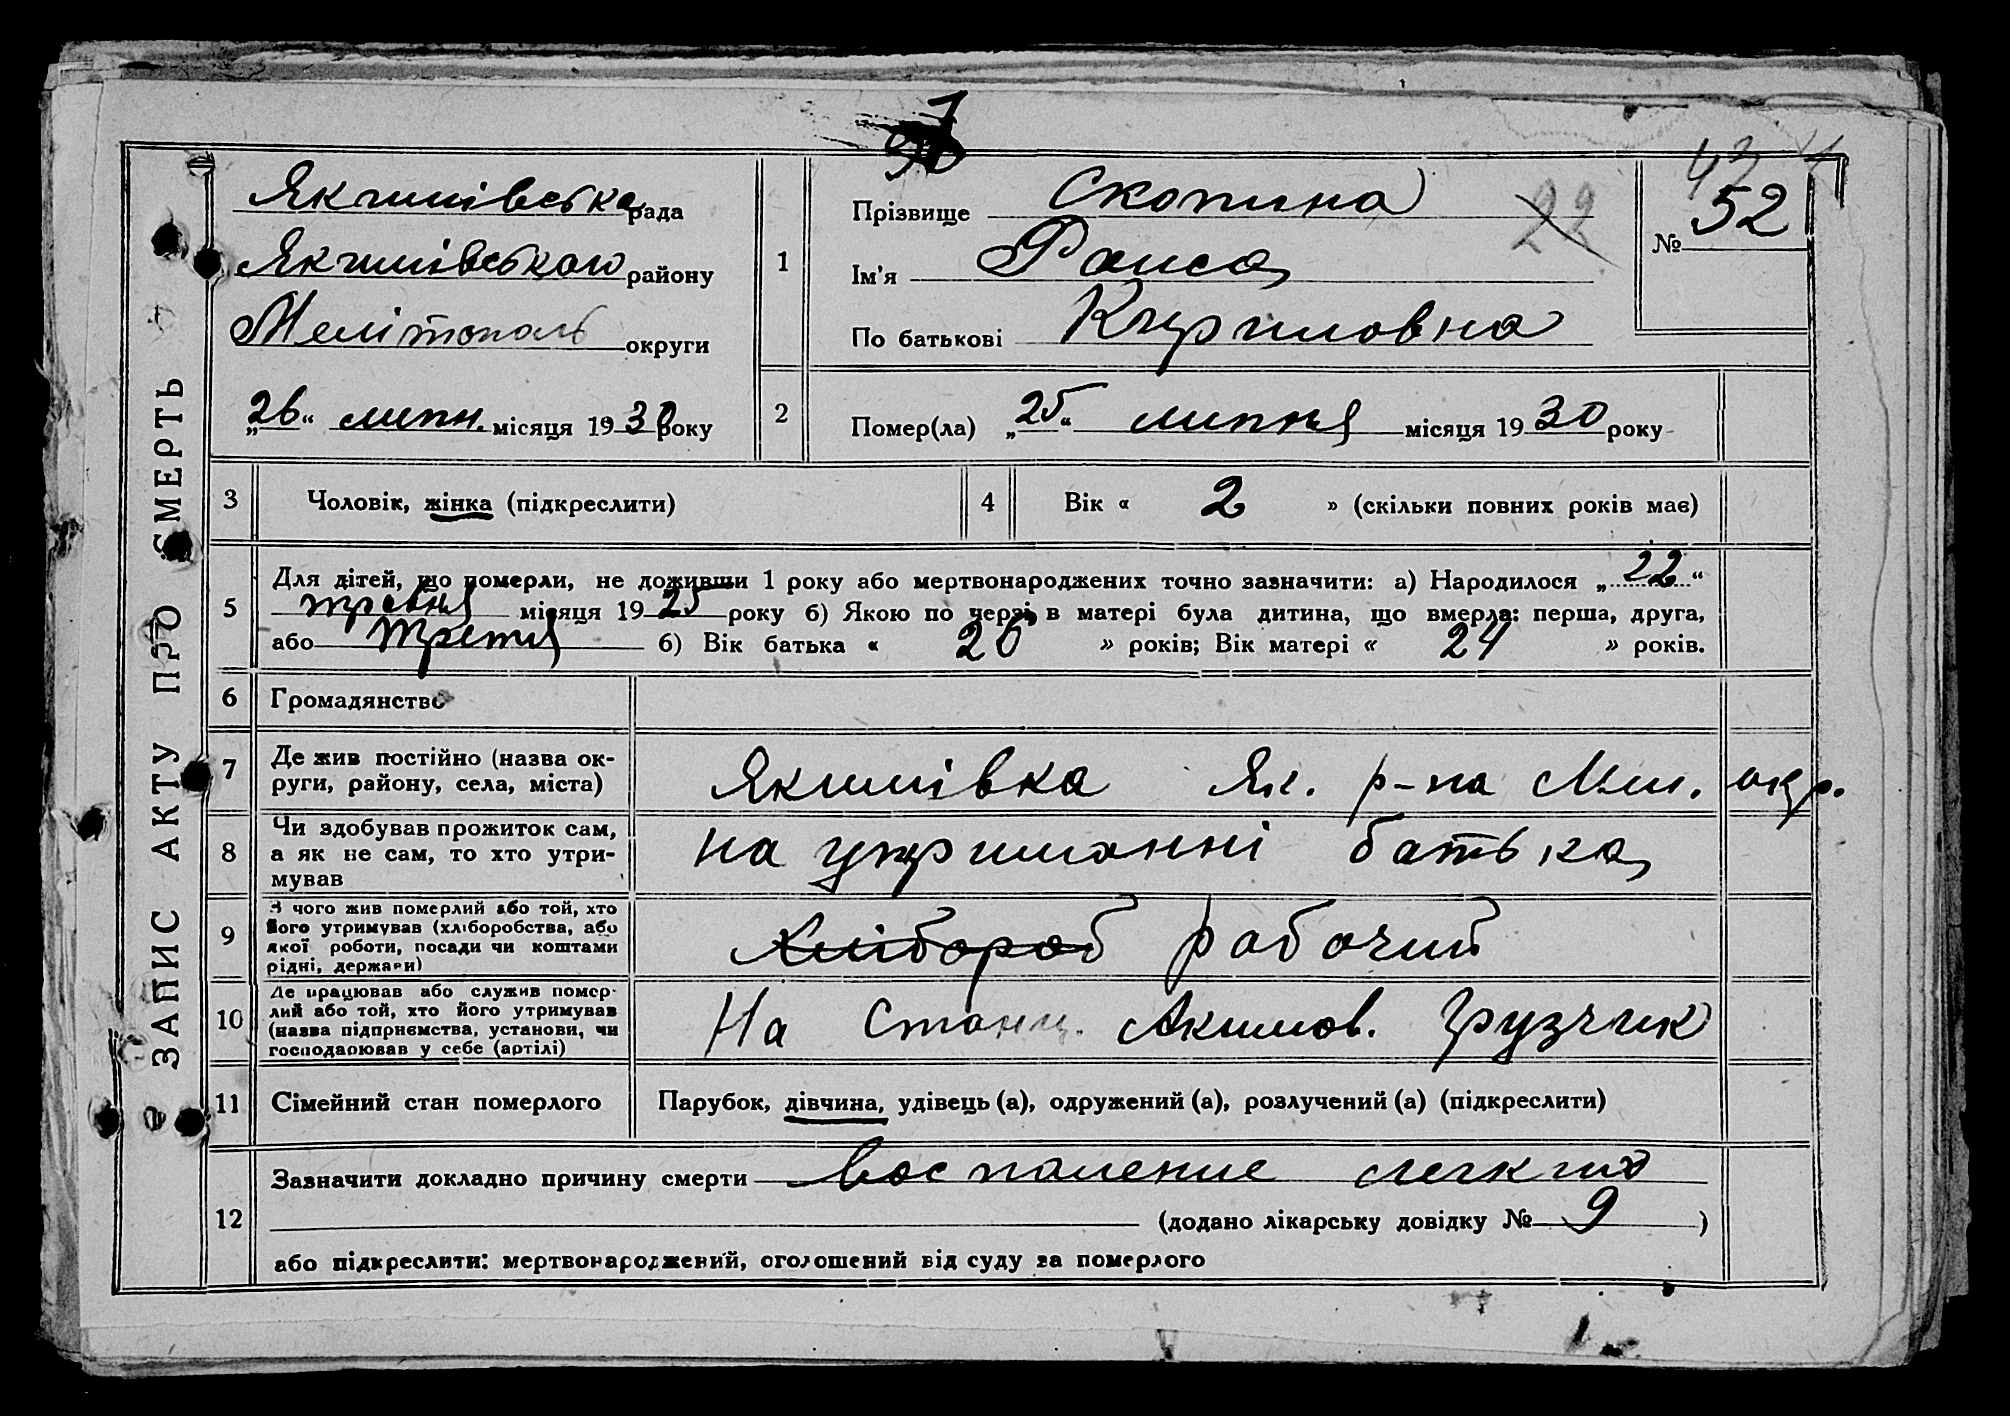 ЗАПИС АКТУ ПРО СМЕРТЬ
Якимівська рада
Якимівського району
Мелітополь округи
„26“ липн. місяця 1930 року
1
Прізвище Скопина
22
Ім'я Раиса
По батькові Кириловна
43
№ 52
2
Помер(ла) „25“ липня місяця 1930 року
3 Чоловік, жінка (підкреслити)
4 Вік « 2 » (скільки повних років має)
5
Для дітей, що померли, не доживши 1 року або мертвонароджених точно зазначити: а) Народилося „22“
травня місяця 1925 року б) Якою по черзі в матері була дитина, що вмерла: перша, друга,
або третя б) Вік батька « 26 » років; Вік матері « 24 » років.
6 Громадянство
7
Де жив постійно (назва ок-
руги, району, села, міста)
Якимівка Як. р-на М.ш. окр.
8
Чи здобував прожиток сам,
а як не сам, то хто утри-
мував
на утриманні батька
9
З чого жив померлий або той, хто
його утримував (хліборобства, або
якої роботи, посади чи коштами
рідні, держави)
Хлібороб рабочий
10
Де працював або служив помер-
лий або той, хто його утримував
(назва підприємства, установи, чи
господарював у себе (артілі)
На Станц. Акимов. Грузчик
11 Сімейний стан померлого
Парубок, дівчина, удівець (а), одружений (а), розлучений (а) (підкреслити)
12
Зазначити докладно причину смерти воспаление легких
(додано лікарську довідку № 9 )
або підкреслити: мертвонароджений, оголошений від суду за померлого